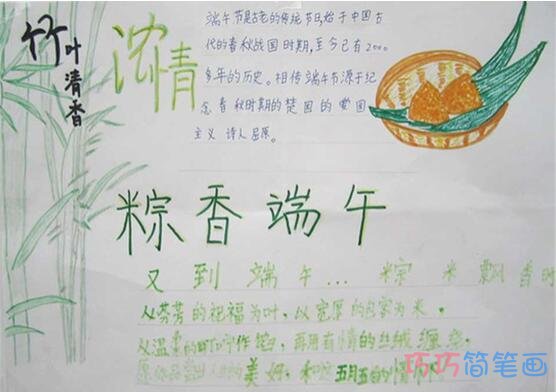 竹叶清香
浓情
端午节是古老的传统节日始于中国古
代的春秋战国时期,至今已有2000
多年的历史。相传端午节源于纪
念春秋时期的楚国的爱国
主义 诗人屈原。
粽香端午
又到端午...粽米飘香时
从芬芳的祝福为叶,以宽厚的包容为米,
从温柔的叮咛作馅,再用有情的丝绒缠绕,
愿你品尝出人生的美好和五月五的情
巧巧简笔画